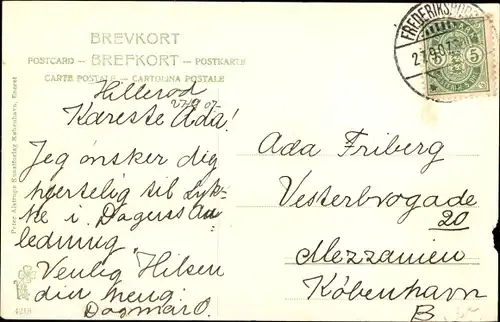 BREVKORT
POSTCARD — BREFKORT — POSTKARTE
CARTE POSTALE — CARTOLINA POSTALE
FREDERIKSBORG
27.9.07
5 5
Hillerød
27/9 07
Kæreste Ada!
Jeg ønsker dig
hjertelig til Lyk-
ke i Dagens An
ledning
Venlig Hilsen
din heng:
Dagmar O.
Ada Friberg
Vesterbrogade
20
Mezzanien
København
B.
Peter Alstrups Kunstforlag København, Eneret
4218